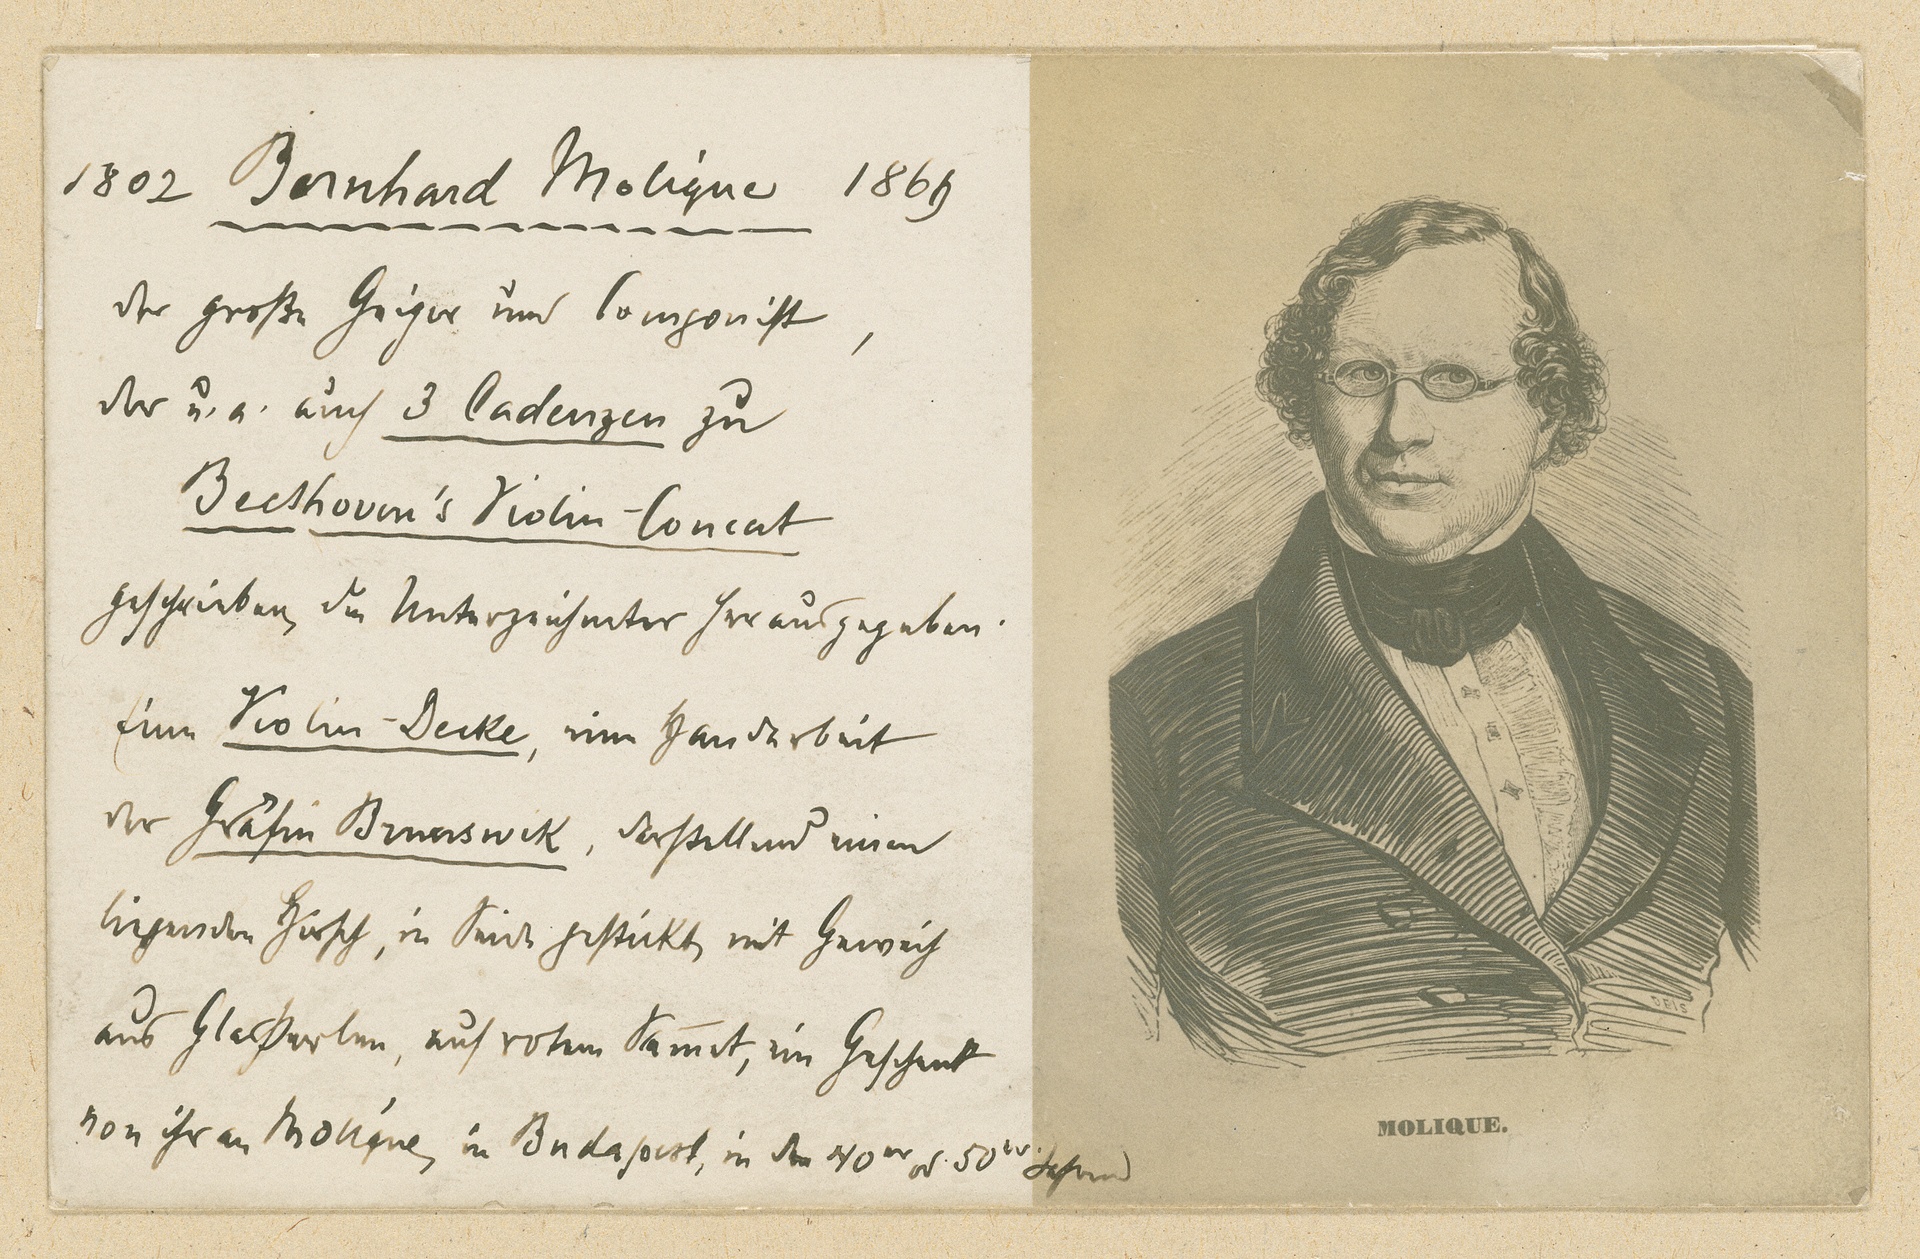 1802 Bernhard Molique 1869
der große Geiger und Componist,
der u. a. auch 3 Cadenzen zu
Beethoven's Violin-Concert
geschrieben, die Unterzeichneter herausgegeben.
Eine Violin-Decke, eine Handarbeit
der Gräfin Brunswik, darstellend einen
liegenden Hirsch, in Seide gestickt, mit Geweih
aus Glasperlen, auf rotem Sam̅et, ein Geschenk
von ihr an Molique, in Budapest, in den 40er od. 50er Jahren
MOLIQUE.